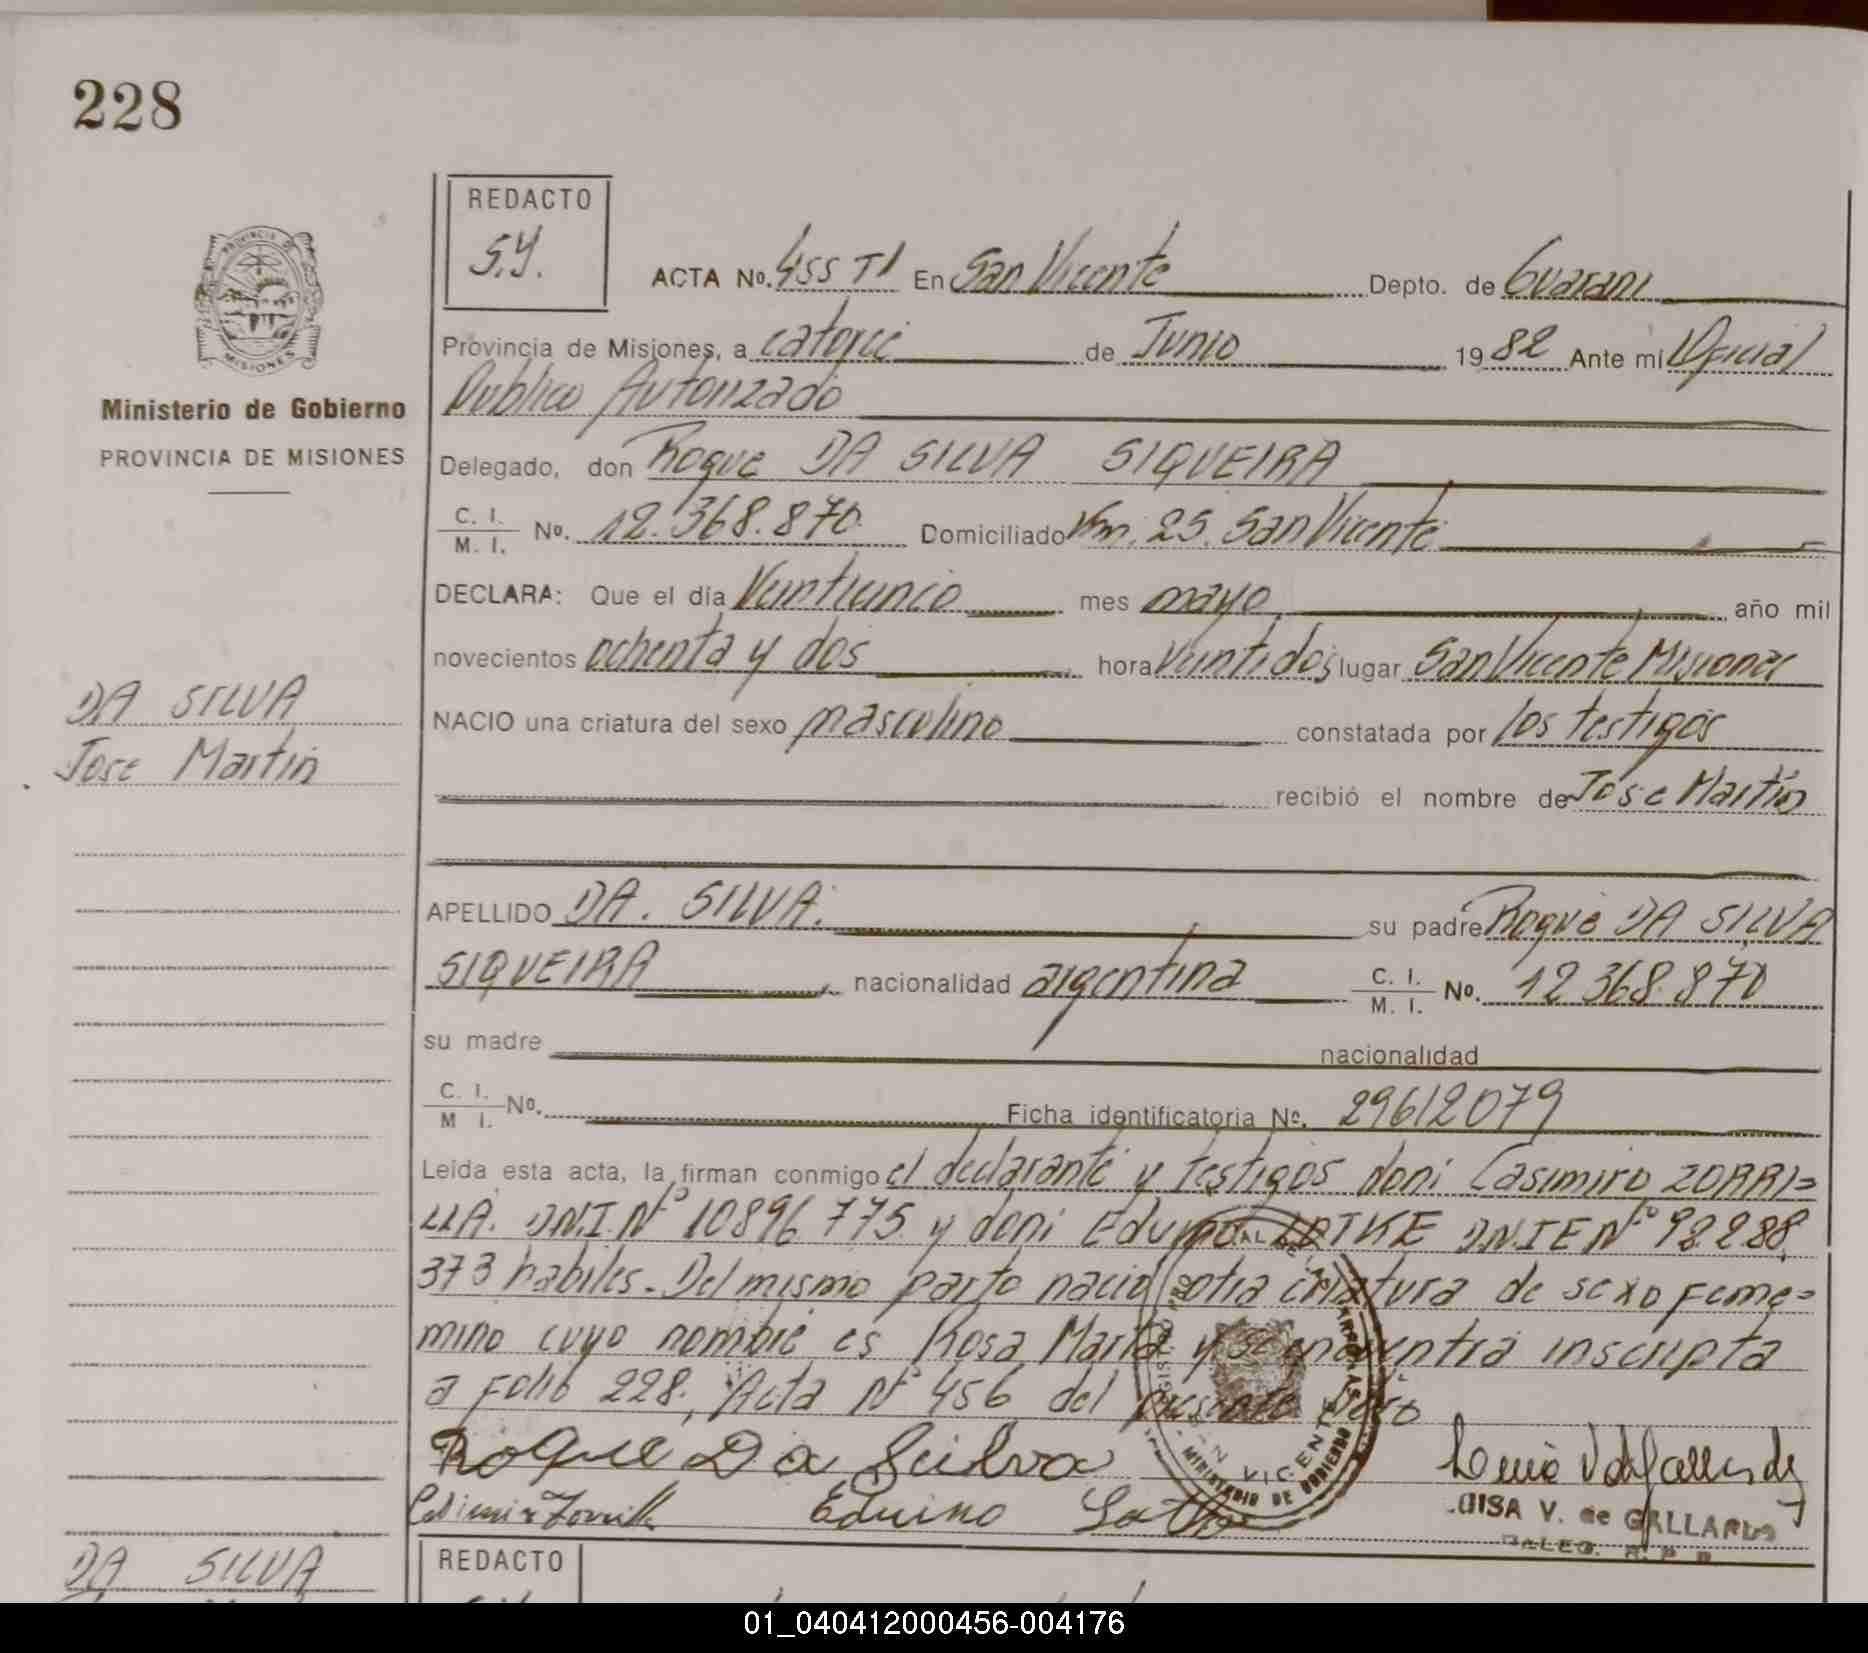 228
REDACTO
S.Y.
ACTA No. 455 T1 En San Vicente Depto. de Guarani
Provincia de Misiones, a catorce de Junio 1982 Ante mi Oficial
Publico Autorizado
Ministerio de Gobierno
PROVINCIA DE MISIONES
Delegado, don Roque DA SILVA SIQUEIRA
C. I.
M. I. No. 12.368.870 Domiciliado Km. 25. San Vicente
DECLARA: Que el día Veintiuno mes mayo año mil
novecientos ochenta y dos hora Veintidos lugar San Vicente Misiones
DA SILVA
Jose Martin
NACIO una criatura del sexo masculino constatada por los testigos
recibió el nombre de Jose Martin
APELLIDO DA. SILVA. su padre Roque DA SILVA
SIQUEIRA nacionalidad argentina C. I. M. I. No. 12 368.870
su madre nacionalidad
C. I. M I. No. Ficha identificatoria No. 29612079
Leida esta acta, la firman conmigo el declarante y testigos doni Casimiro ZORRI=
LLA. DNI. Nº 10896.775. y doni Eduino DNIE Nº 92288.
373 habiles. Del mismo parto nacio otra criatura de sexo feme=
mino cuyo nombre es Rosa Maria y se encuentra inscripta
a folio 228, Acta Nº 456 del presente libro
Roque Da Suilva
Casimiro Zorrilla Eduino
SAN VICENTE
MINISTERIO DE GOBIERNO
LUISA V. de GALLARDO
DA SILVA
REDACTO
01_040412000456-004176